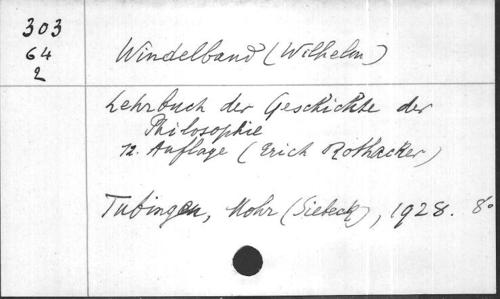 303
64
2
Windelband (Wilhelm)
Lehrbuch der Geschichte der
Philosophie
12. Auflage (Erich Rothacker)
Tubingen, Mohr (Siebeck), 1928. 8°